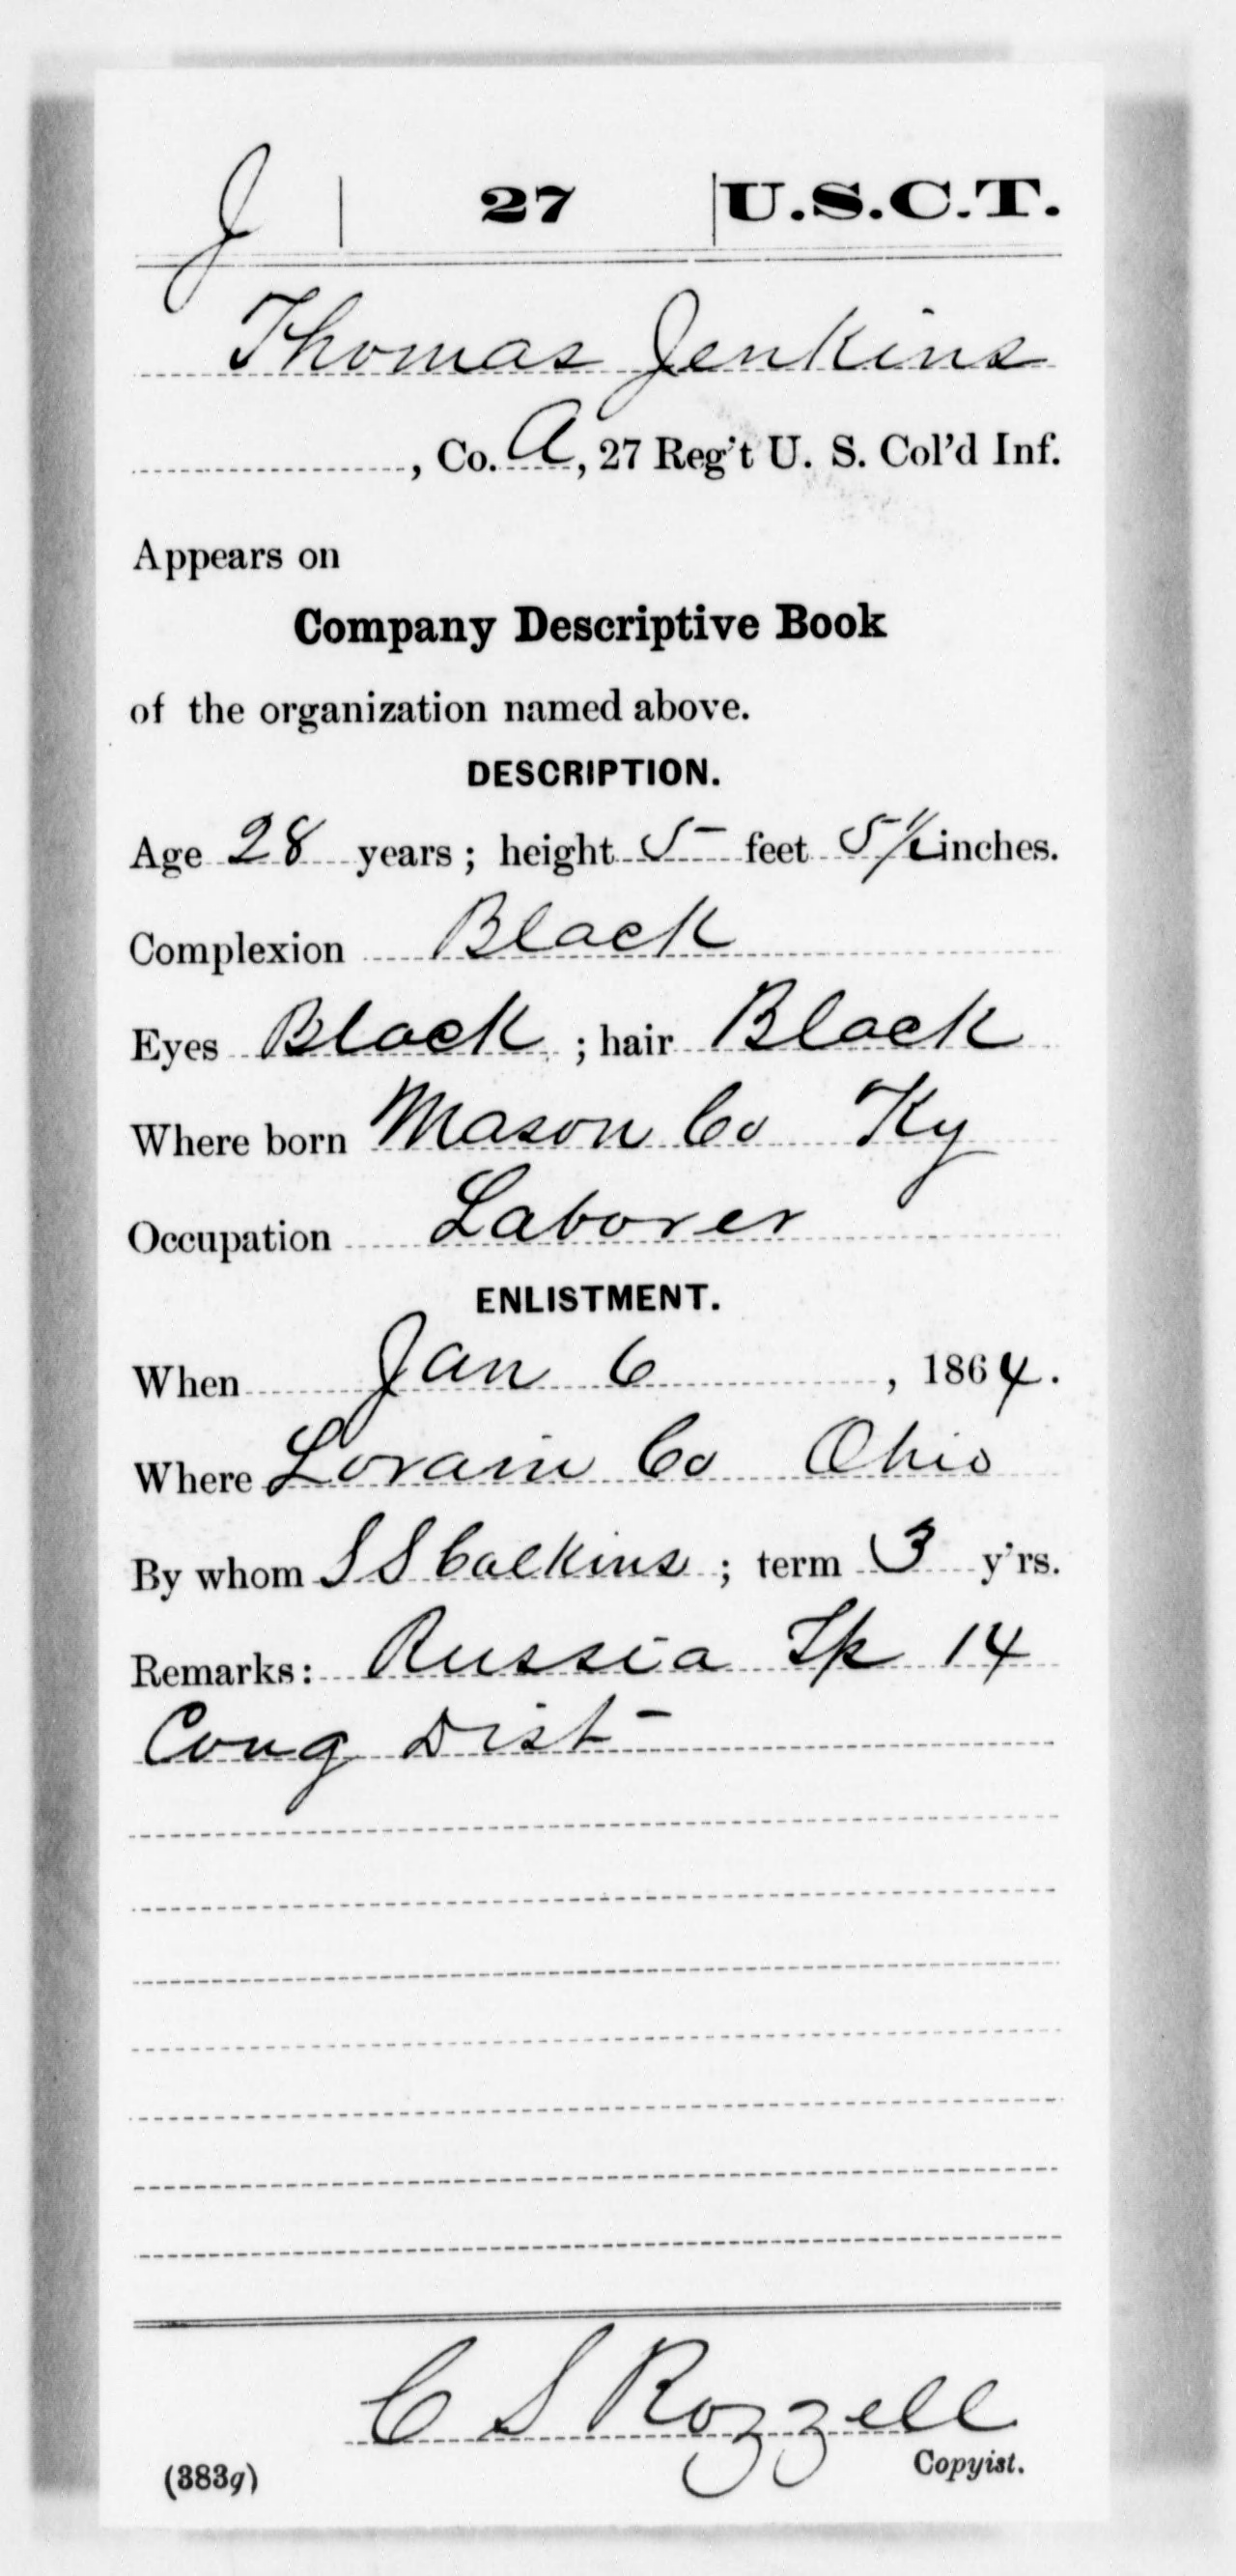 J | 27 | U.S.C.T.
Thomas Jenkins
, Co. A, 27 Reg't U. S. Col'd Inf.
Appears on
Company Descriptive Book
of the organization named above.
DESCRIPTION.
Age 28 years; height 5 feet 5 1/2 inches.
Complexion Black
Eyes Black; hair Black
Where born Mason Co Ky
Occupation Laborer
ENLISTMENT.
When Jan 6, 1864.
Where Lorain Co Ohio
By whom S S Calkins; term 3 y'rs.
Remarks: Russia Tp 14
Cong Dist
C S Rozzell
Copyist.
(383g)